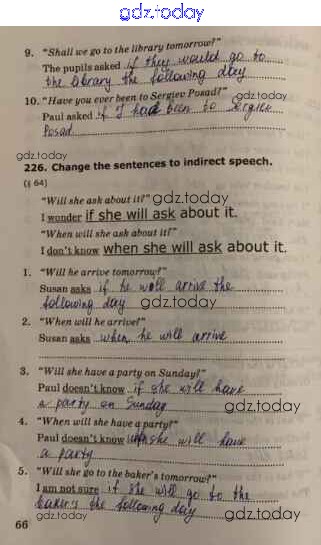 gdz.today
9. "Shall we go to the library tomorrow?"
The pupils asked if they would go to
the library the following day
10. "Have you ever been to Sergiev Posad?"
Paul asked if I had been to Sergiev
Posad
gdz.today
gdz.today
226. Change the sentences to indirect speech.
(§ 64)
"Will she ask about it?" gdz.today
I wonder if she will ask about it.
"When will she ask about it?"
I don't know when she will ask about it.
1. "Will he arrive tomorrow?"
Susan asks if he will arrive the
following day gdz.today
2. "When will he arrive?"
Susan asks when he will arrive
3. "Will she have a party on Sunday?"
Paul doesn't know if she will have
a party on Sunday gdz.today
4. "When will she have a party?"
Paul doesn't know when she will have
a party gdz.today
5. "Will she go to the baker's tomorrow?"
I am not sure if she will go to the
baker's the following day
66
gdz.today
gdz.today